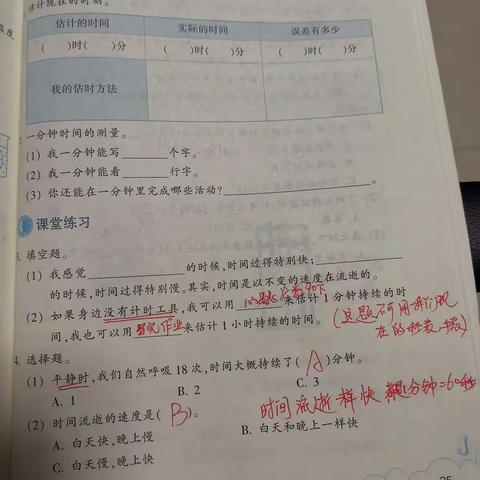 估计现在的时刻。
温度
估计的时间 实际的时间 误差有多少
( )时( )分 ( )时( )分 ( )时( )分
我的估时方法
一分钟时间的测量。
(1) 我一分钟能写______个字。
(2) 我一分钟能看______行字。
(3) 你还能在一分钟里完成哪些活动?______。
课堂练习
3. 填空题。
(1) 我感觉______的时候,时间过得特别快;______
的时候,时间过得特别慢。其实,时间是以不变的速度在流逝的。
(2) 如果身边没有计时工具,我可以用 心跳 来估计1分钟持续的时
间,我也可以用写完作业来估计1小时持续的时间。
(这题不可用我们现
在的钟表
4. 选择题。
(1) 平静时,我们自然呼吸18次,时间大概持续了( A )分钟。
A. 1 B. 2 C. 3
(2) 时间流逝的速度是( B )。
时间流逝一样快 1分钟=60秒
A. 白天快,晚上慢 B. 白天和晚上一样快
C. 白天慢,晚上快
25